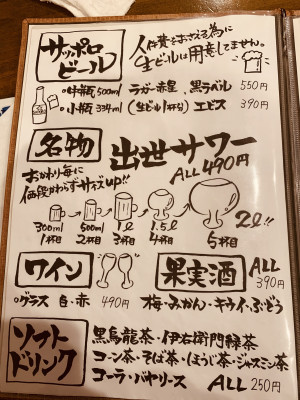 サッポロビール
人件費をおさえる為に
生ビールは用意してません。
○中瓶 500ml ラガー赤星、黒ラベル 550円
○小瓶 334ml (生ビール1杯分) エビス 390円
名物
出世サワー
ALL 490円
おかわり毎に
値段かわらずサイズup!!
300ml 500ml 1l 1.5l 2l!!
1杯目 2杯目 3杯目 4杯目 5杯目
ワイン
○グラス 白・赤 490円
果実酒
ALL 390円
梅・みかん・キウイ・ぶどう
ソフトドリンク
黒烏龍茶・伊右衛門緑茶
コーン茶・そば茶・ほうじ茶・ジャスミン茶
コーラ・バヤリース ALL 250円